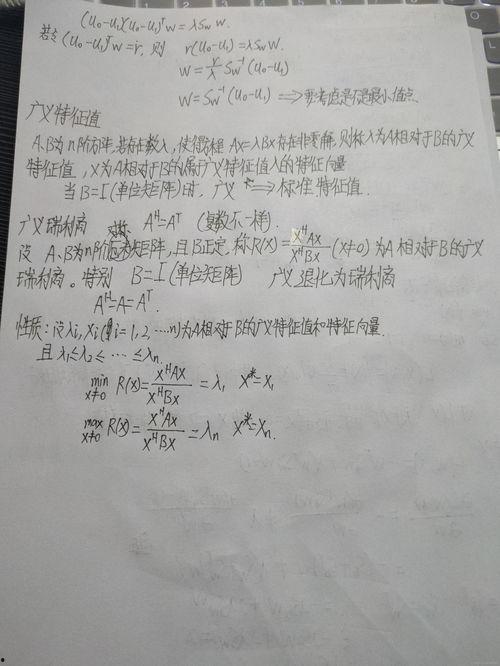 (u₀-u₁)(u₀-u₁)ᵀw = λS_w w.
若令(u₀-u₁)ᵀw = r, 则 r(u₀-u₁) = λS_w w.
w = r/λ S_w⁻¹(u₀-u₁)
w = S_w⁻¹(u₀-u₁) ⟹ 要考虑是否是最小值点.
广义特征值
A、B为n阶方阵,若存在数λ,使得方程 Ax=λBx存在非零解,则称λ为A相对于B的广义
特征值,x为A相对于B的属于广义特征值λ的特征向量
当B=I(单位矩阵)时,广义 ⟹ 标准特征值.
广义瑞利商 Aᴴ=Aᵀ (复数不一样).
设 A、B为n阶矩阵,且B正定,称R(x)= xᴴAx / xᴴBx (x≠0) 为A相对于B的广义
瑞利商。特别 B=I(单位矩阵) 广义退化为瑞利商
Aᴴ=A=Aᵀ.
性质:设λi,xi(i=1,2,…n)为A相对于B的广义特征值和特征向量.
且 λ₁≤λ₂≤ … ≤λn.
min x≠0 R(x)= xᴴAx / xᴴBx = λ₁ x*=x₁
max x≠0 R(x)= xᴴAx / xᴴBx = λn x*=xn.